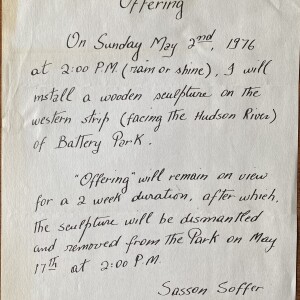 Offering
On Sunday May 2nd, 1976
at 2:00 P.M. (rain or shine), I will
install a wooden sculpture on the
western strip (facing the Hudson River)
of Battery Park.
"Offering" will remain on view
for a 2 week duration, after which,
the sculpture will be dismantled
and removed from the Park on May
17th at 2:00 P.M.
Sasson Soffer